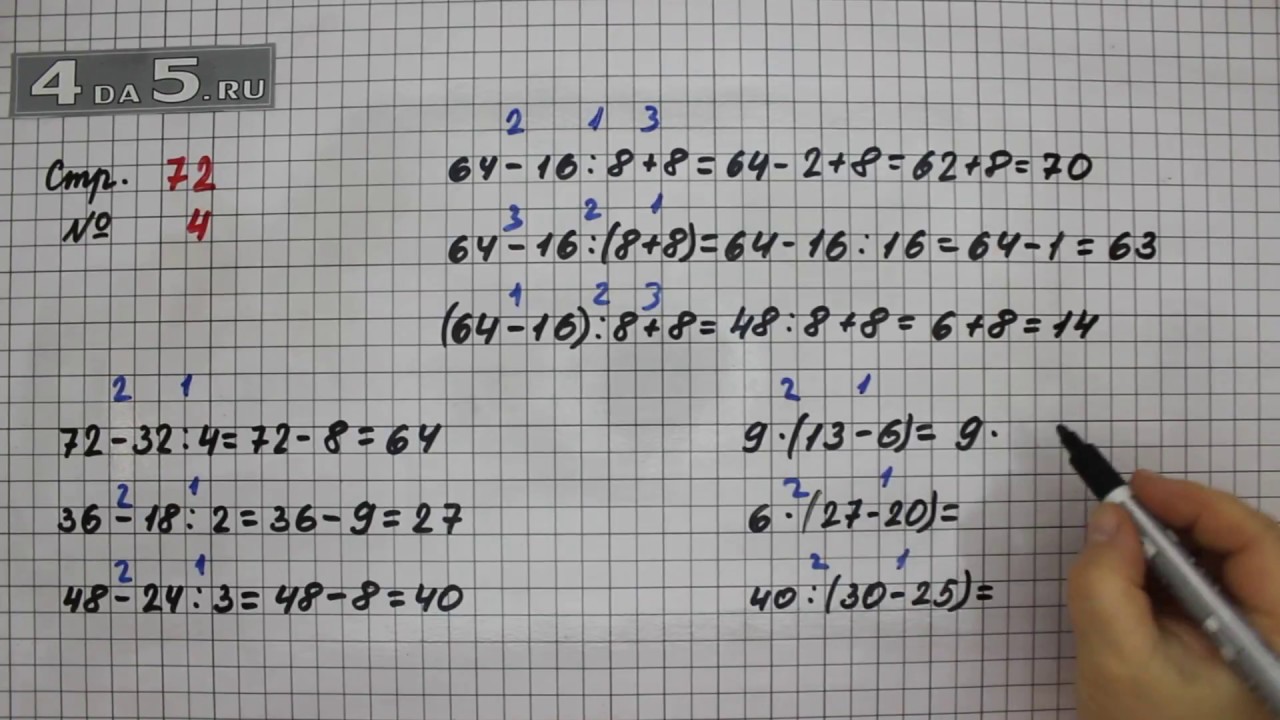 4 DA 5.RU
Стр. 72
№ 4
2 1 3
64 - 16 : 8 + 8 = 64 - 2 + 8 = 62 + 8 = 70
3 2 1
64 - 16 : (8 + 8) = 64 - 16 : 16 = 64 - 1 = 63
1 2 3
(64 - 16) : 8 + 8 = 48 : 8 + 8 = 6 + 8 = 14
2 1
72 - 32 : 4 = 72 - 8 = 64
2 1
36 - 18 : 2 = 36 - 9 = 27
2 1
48 - 24 : 3 = 48 - 8 = 40
2 1
9 · (13 - 6) = 9 ·
2 1
6 · (27 - 20) =
2 1
40 : (30 - 25) =